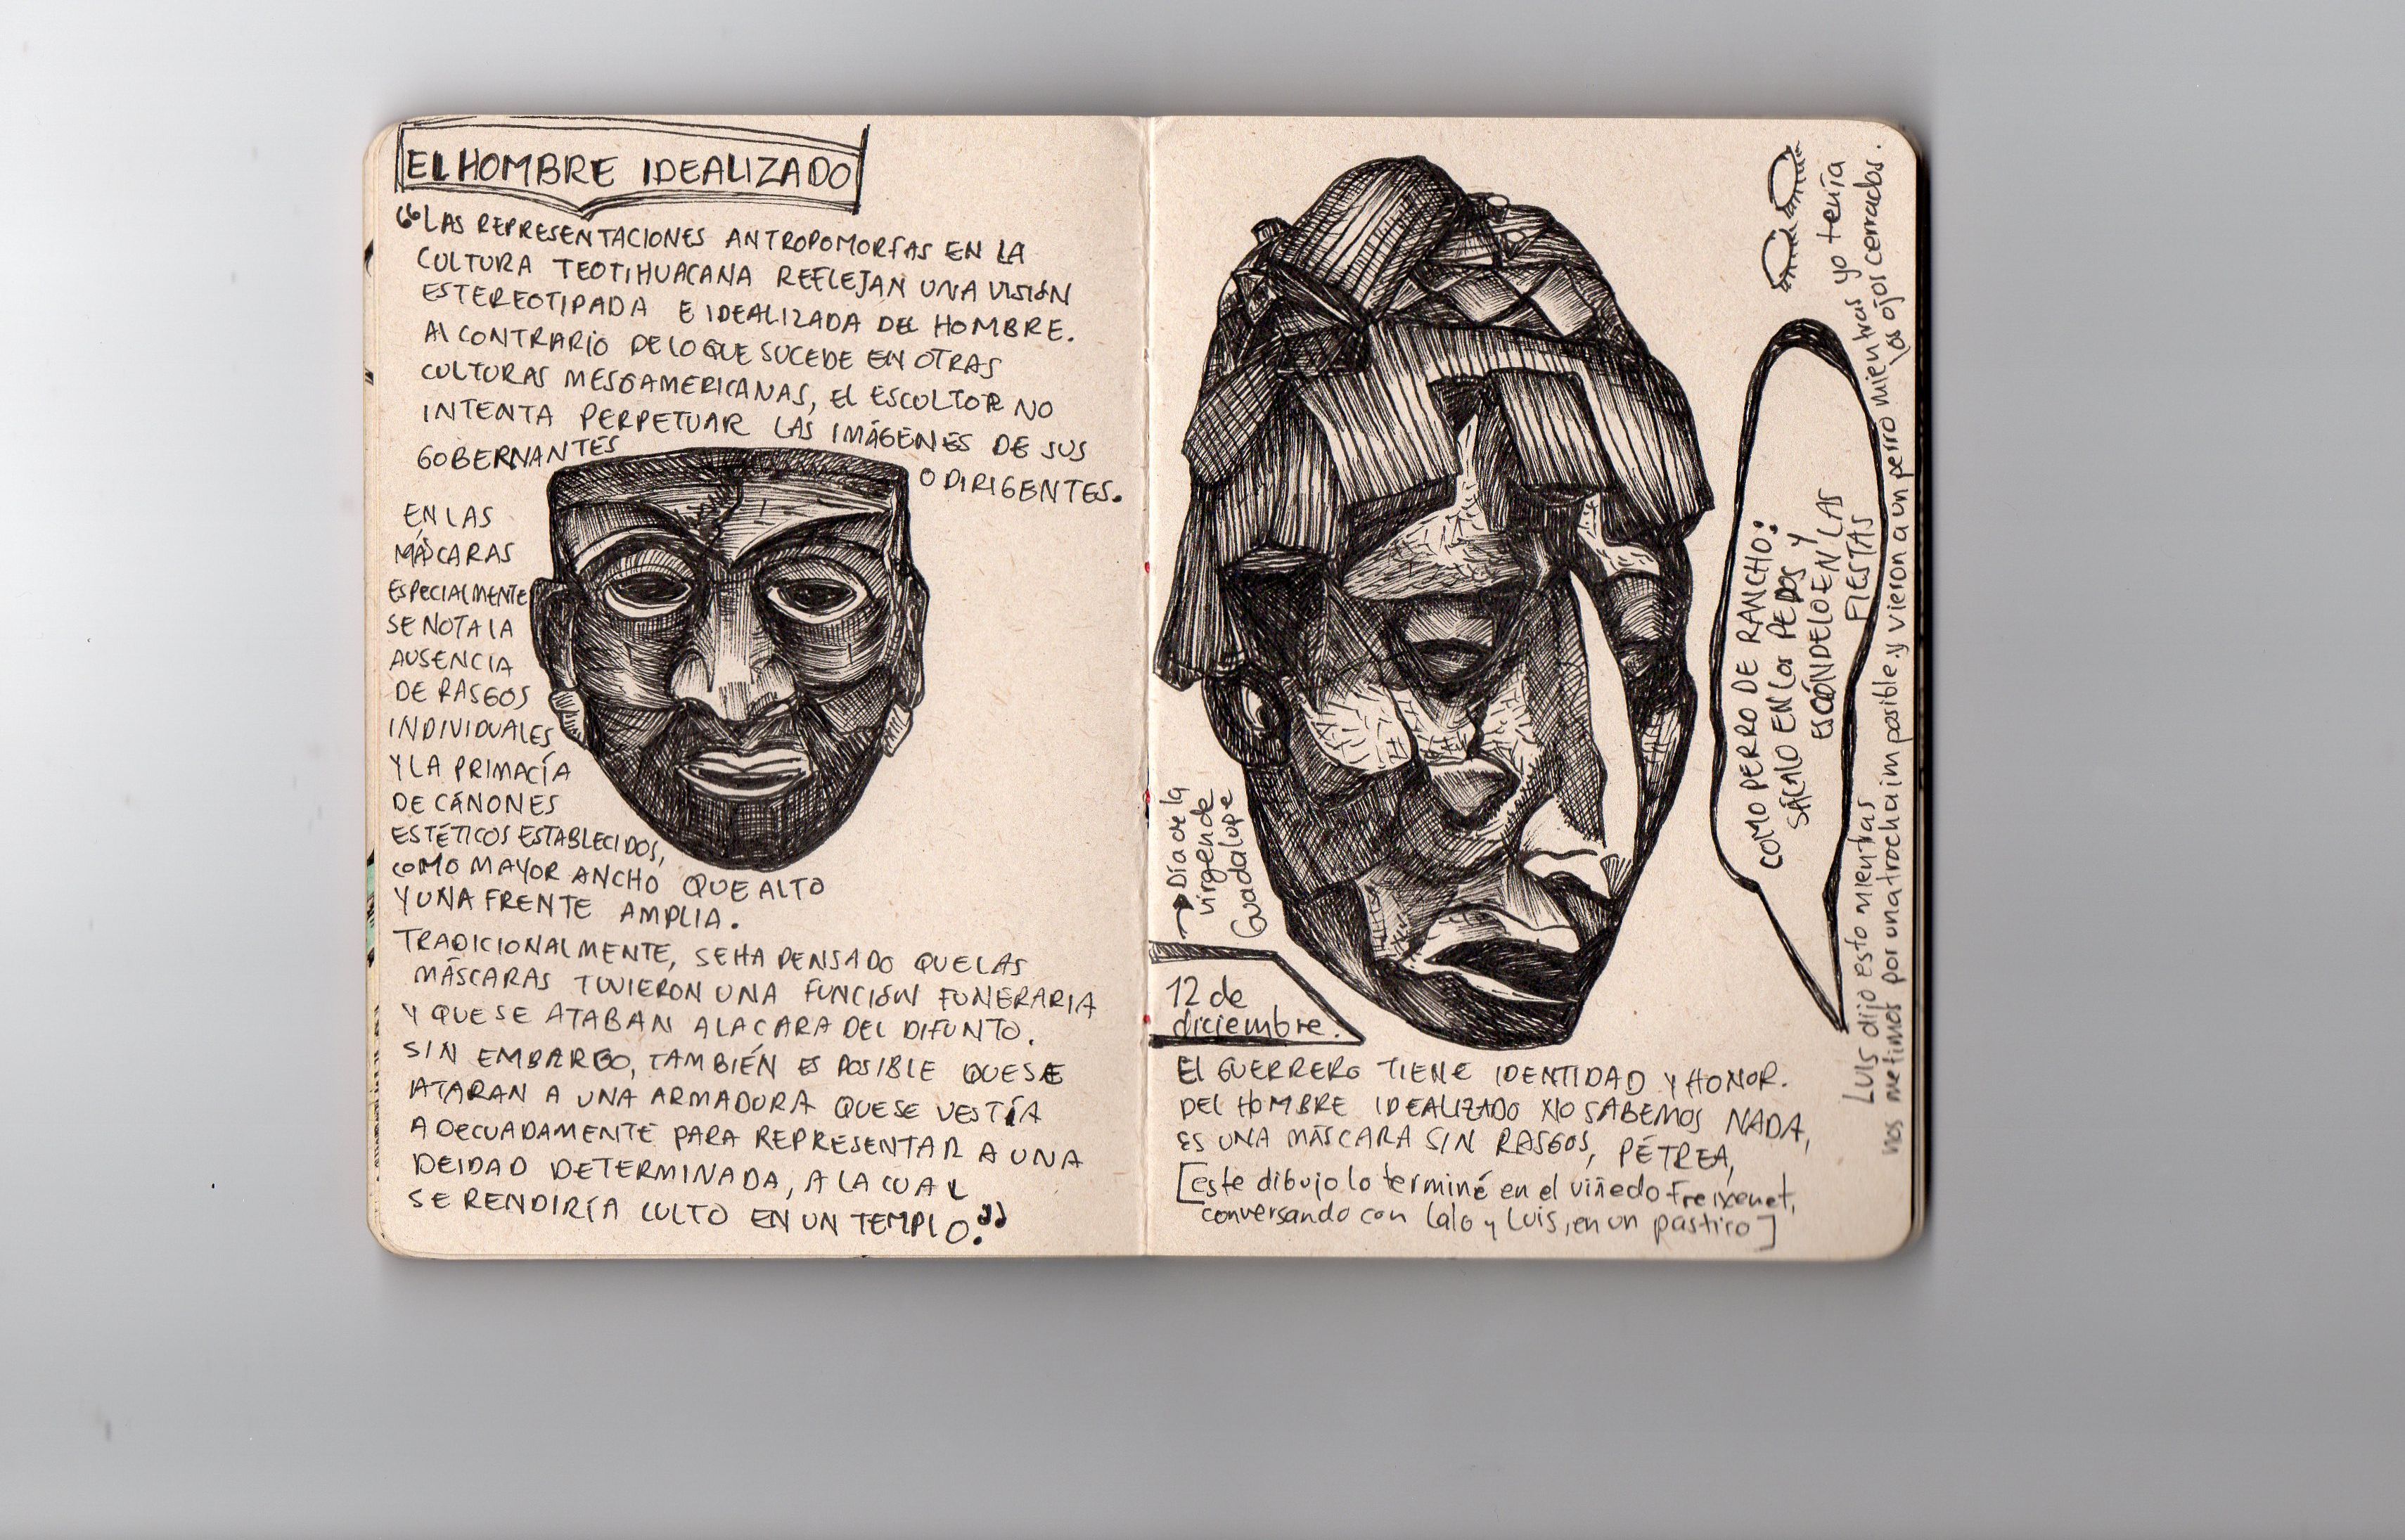 EL HOMBRE IDEALIZADO
“LAS REPRESENTACIONES ANTROPOMORFAS EN LA
CULTURA TEOTIHUACANA REFLEJAN UNA VISIÓN
ESTEREOTIPADA E IDEALIZADA DEL HOMBRE.
Al CONTRARIO DE LO QUE SUCEDE EN OTRAS
CULTURAS MESOAMERICANAS, El ESCULTOR NO
INTENTA PERPETUAR LAS IMÁGENES DE SUS
GOBERNANTES
O DIRIGENTES.
EN LAS
MÁSCARAS
ESPECIALMENTE
SE NOTA LA
AUSENCIA
DE RASGOS
INDIVIDUALES
Y LA PRIMACÍA
DE CÁNONES
ESTÉTICOS ESTABLECIDOS,
COMO MAYOR ANCHO QUE ALTO
Y UNA FRENTE AMPLIA.
TRADICIONALMENTE, SE HA PENSADO QUE LAS
MÁSCARAS TUVIERON UNA FUNCIÓN FUNERARIA
Y QUE SE ATABAN A LA CARA DEL DIFUNTO.
SIN EMBARGO, TAMBIÉN ES POSIBLE QUE SE
ATARAN A UNA ARMADURA QUE SE VESTÍA
ADECUADAMENTE PARA REPRESENTAR A UNA
DEIDAD DETERMINADA, A LA CUAL
SE RENDIRÍA CULTO EN UN TEMPLO.”
Día de la
virgen de
Guadalupe
12 de
diciembre.
El GUERRERO TIENE IDENTIDAD Y HONOR.
DEL HOMBRE IDEALIZADO NO SABEMOS NADA,
ES UNA MÁSCARA SIN RASGOS, PÉTREA,
[este dibujo lo terminé en el viñedo Freixenet,
conversando con Lalo y Luis, en un pastito]
COMO PERRO DE RANCHO:
SÁCALO EN LOS PEDOS Y
ESCÓNDELO EN LAS
FIESTAS
Luis dijo esto mientras
nos metimos por una trocha imposible y vieron a un perro mientras yo tenía
los ojos cerrados.